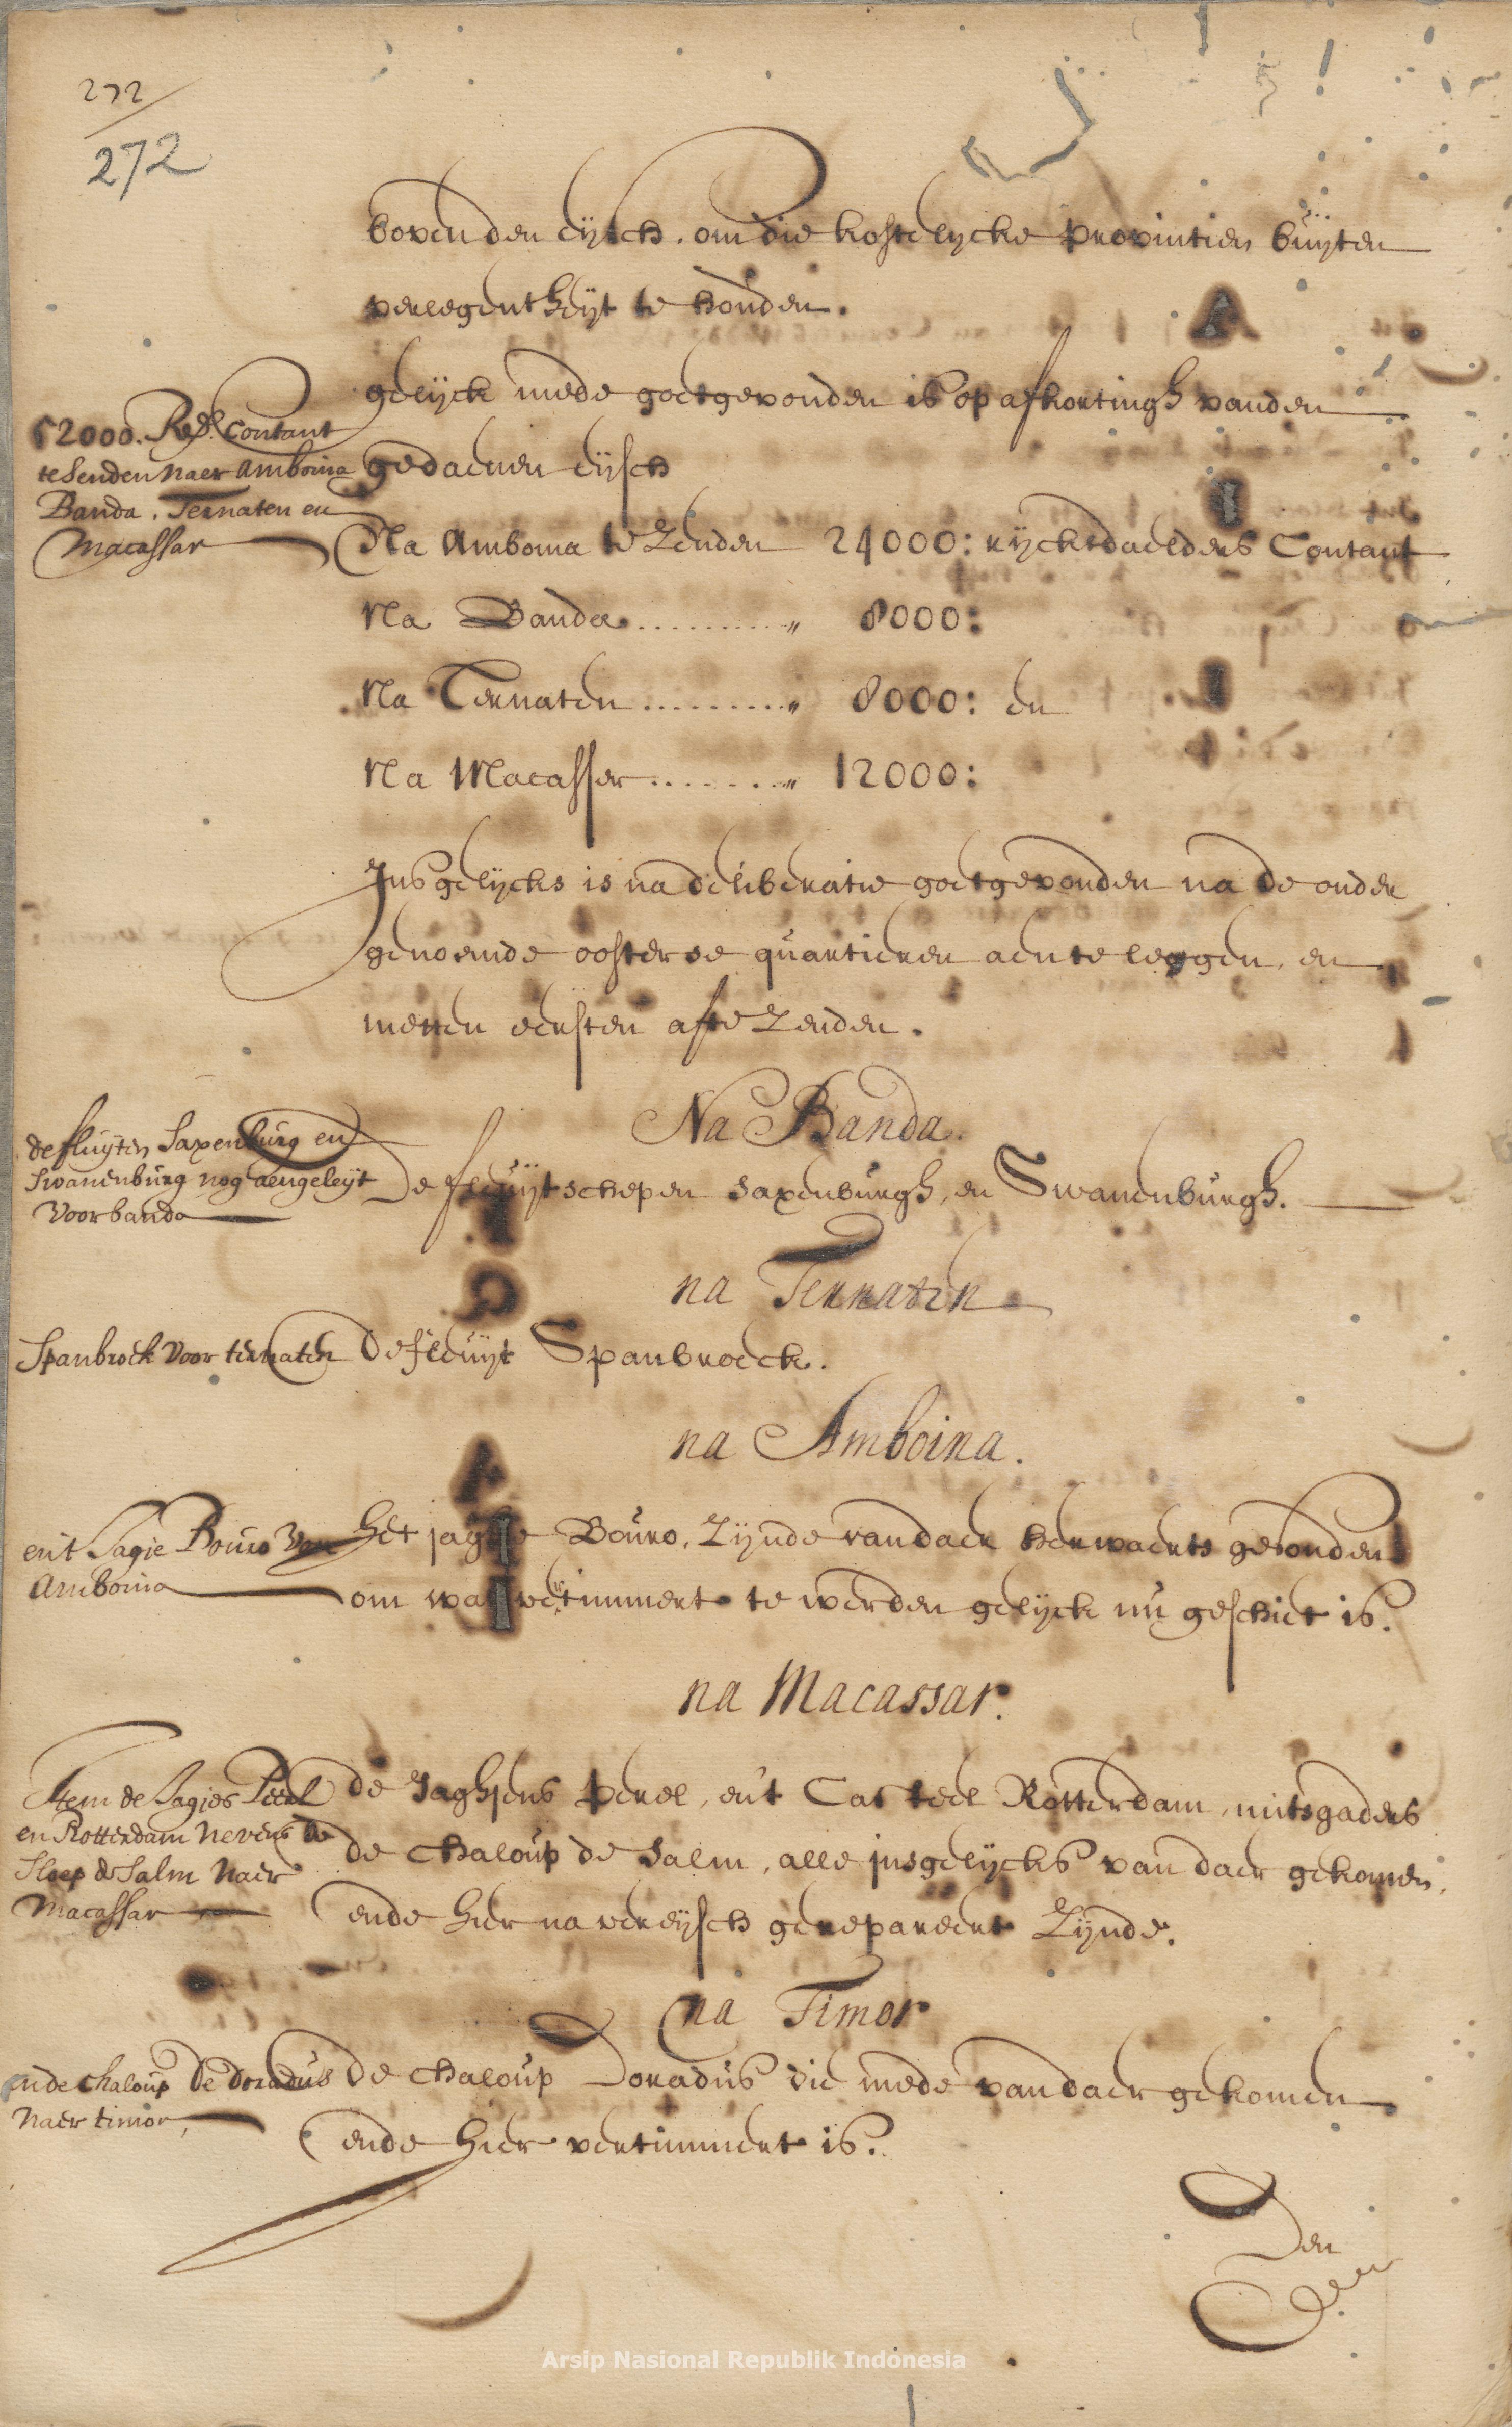 272
272
boven den eijsch, om die kostelycke provintien buijten
verlegentheijt te houden.
gelijck mede goetgevonden is op afkortingh vanden
52000. Rds. Contant
te senden naer Amboina
Banda, Ternaten en
Macassar
gedaenen eijsch
Na Amboina te zenden 24000: rijcksdaelders Contant
Na Banda .......... " 8000:
Na Ternaten .......... " 8000: en
Na Macasser ........ " 12000:
Insgelijcks is na deliberatie goetgevonden na de onder
genoemde oosterse quartieren aen te leggen, en
metten eersten af te zenden.
Na Banda.
de fluijten Saxenburg en
Swanenburg nog aengeleijt
voor banda
De fleuijtschepen Saxenburgh, en Swanenburgh.
na Ternaten
Spanbroek voor ternaten
De fleuijt Spanbroeck.
na Amboina.
ent Jagie Bouro
Amboina
Het jaghje Bouro, zijnde van daer herwaerts gesonden
om wat vertimmert te werden gelijck nu geschiet is.
na Macassar.
Item de Jagies Peerl
en Rotterdam nevens de
Sloep de Salm naer
Macassar
de Jaghjens Perel, en't Casteel Rotterdam, mitsgaders
de chaloup de Salm, alle insgelijcks van daer gekomen,
ende hier na vereijsch gerepareert zijnde.
na Timor
en de chaloup de Doradus
naer timor,
de chaloup Doradus die mede van daer gekomen
ende hier vertimmert is.
Den
Arsip Nasional Republik Indonesia